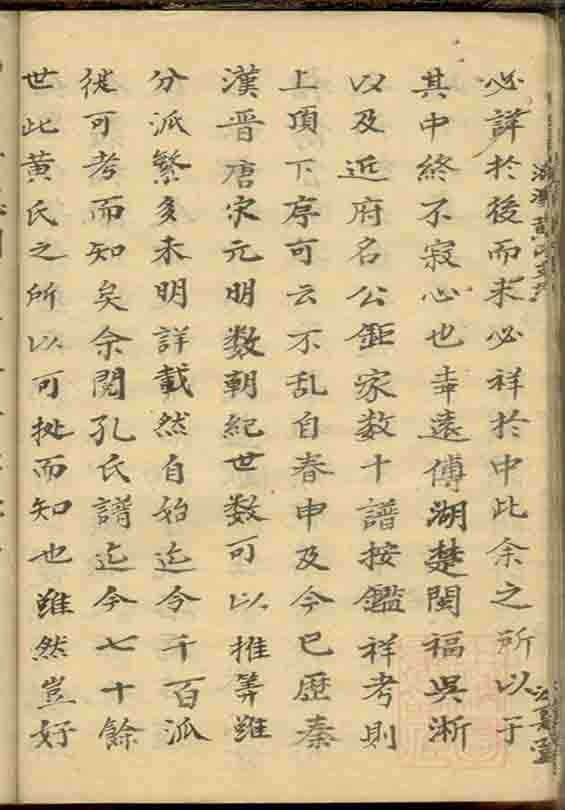 必詳於後而未必祥於中此余之所以于
其中終不寂心也幸遠傅湖楚閩福吳淅
以及近府名公鉅家数十譜按鑑祥考則
上項下序可云不乱自春申及今已歷秦
漢晋唐宋元明数朝紀世数可以推筭雖
分派繁多未明詳載然自始迄今千百派
從可考而知矣余閲孔氏譜迄今七十餘
世此黄氏之所以可挑而知也雖然豈好